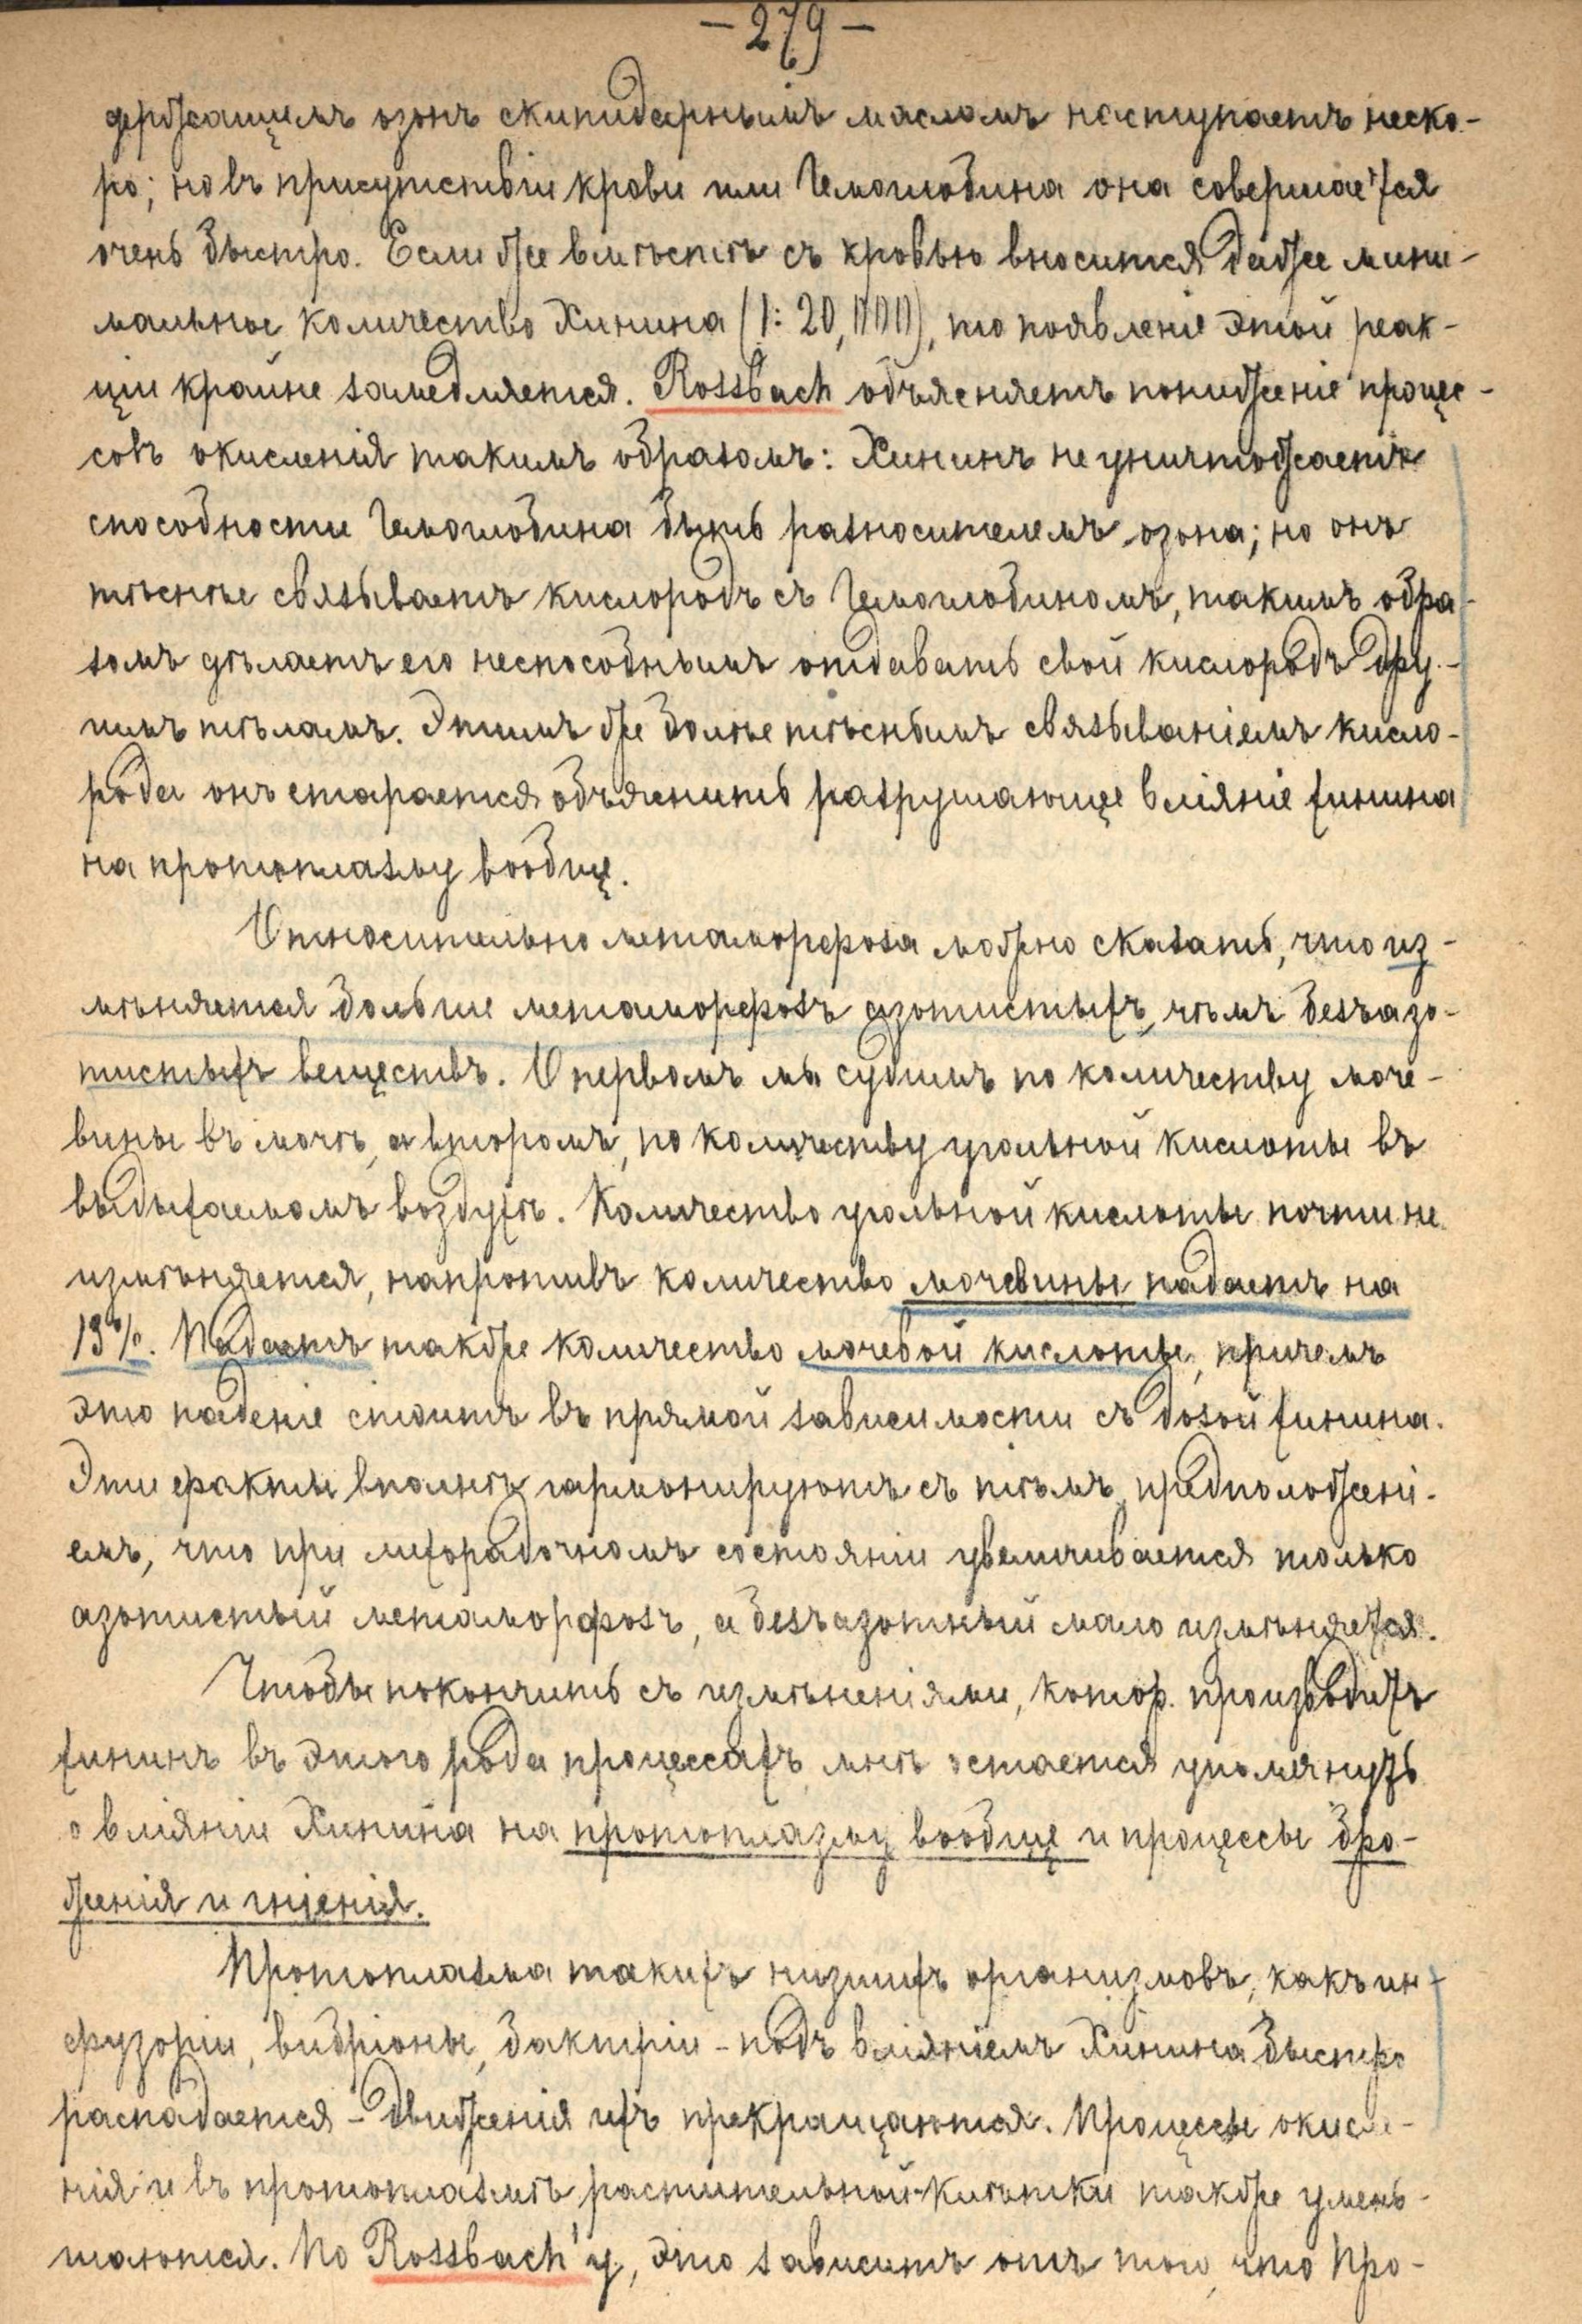 – 279 –
держащимъ озонъ скипидарнымъ масломъ наступаетъ неско-
ро; но въ присутствіи крови или Гемоглобина она совершается
очень быстро. Если же вмѣстѣ съ кровью вносится даже мини-
мальное количество Хинина (1: 20,000), то появленіе этой реак-
ціи крайне замедляется. Rossbach объясняетъ пониженіе процес-
совъ окисленія такимъ образомъ: Хининъ не уничтожаетъ
способности Гемоглобина быть разносителемъ озона; но онъ
тѣснѣе связываетъ кислородъ съ Гемоглобиномъ, такимъ обра-
зомъ дѣлаетъ его неспособнымъ отдавать свой кислородъ дру-
гимъ тѣламъ. Этимъ же болѣе тѣснымъ связываніемъ кисло-
рода онъ старается объяснить разрушающее вліяніе хинина
на протоплазму вообще.
Относительно метаморфоза можно сказать, что из-
мѣняется больше метаморфозъ азотистыхъ, чѣмъ безъазо-
тистыхъ веществъ. О первомъ мы судимъ по количеству моче-
вины въ мочѣ, а второмъ, по количеству угольной кислоты въ
выдыхаемомъ воздухѣ. Количество угольной кислоты почти не
измѣняется, напротивъ количество мочевины падаетъ на
13%. Падаетъ также количество мочевой кислоты, причемъ
это паденіе стоитъ въ прямой зависимости съ дозой хинина.
Эти факты вполнѣ гармонируютъ съ тѣмъ предположені-
емъ, что при лихорадочномъ состояніи увеличивается только
азотистый метаморфозъ, а безъазотный мало измѣняется.
Чтобы покончить съ измѣненіями, котор. производитъ
хининъ въ этого рода процессахъ, мнѣ остается упомянуть
о вліяніи Хинина на протоплазму вообще и процессы бро-
женія и гніенія.
Протоплазма такихъ низшихъ организмовъ, какъ ин-
фузоріи, вибріоны, бактріи – подъ вліяніемъ Хинина быстро
распадается – движенія ихъ прекращаются. Процессы окисле-
нія и въ протоплазмѣ растительной клѣтки также умень-
шаются. По Rossbach'у, это зависитъ отъ того, что Про-